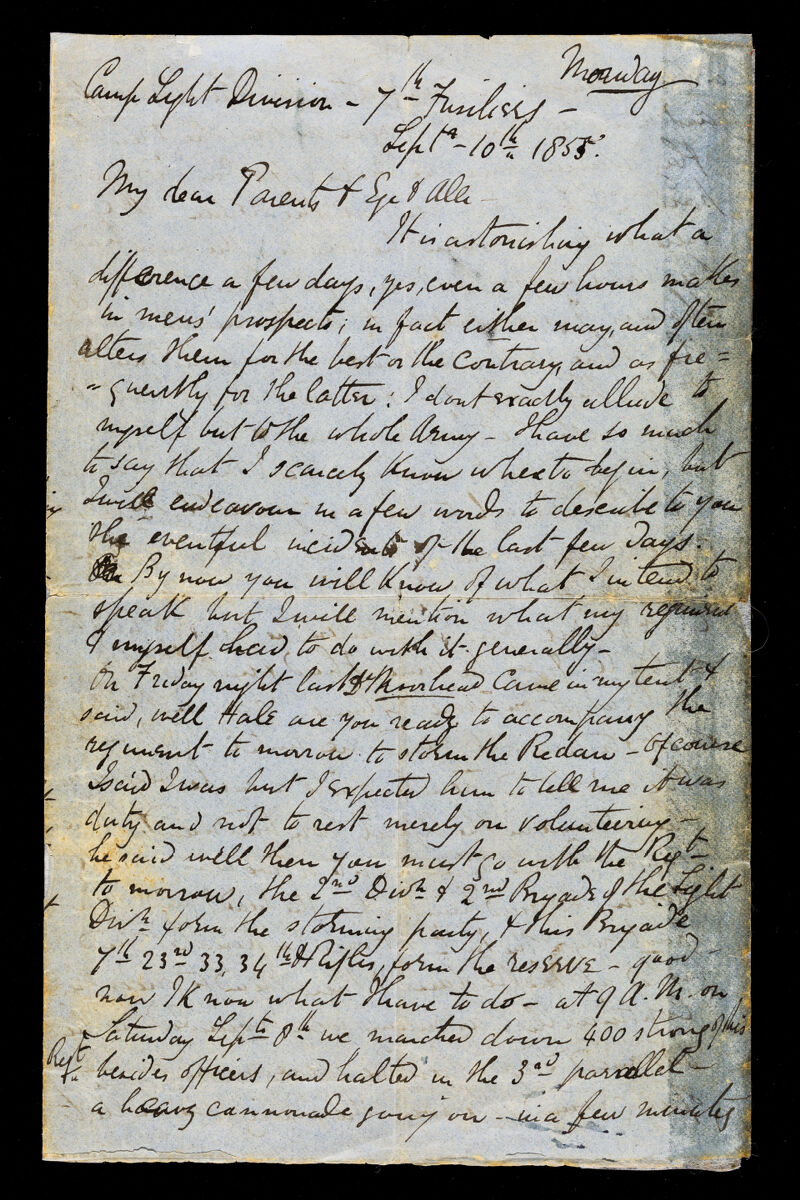 Monday
Camp Light Division - 7th Fusiliers -
Septr - 10th 1855.
My dear Parents &
It is astonishing what a
difference a few days, yes, even a few hours makes
in mens' prospects; in fact either may, and often
alters them for the best or the contrary, and as fre=
=quently for the latter: I dont exactly allude to
myself but to the whole Army - I have so much
to say that I scarcely know where to begin, but
I will endeavour in a few words to describe to you
the eventful incidents of the last few days.
By now you will know of what I intend to
speak but I will mention what my regiment
& myself had to do with it generally -
On Friday night last Dr Moorhead came in my tent &
said, well Hale are you ready to accompany the
regiment to morrow to storm the Redan - of course
I said I was but I expected him to tell me it was
duty and not to rest merely on volunteering -
he said well then you must go with the Regt
to morrow, the 2nd Divn & 2nd Brigade of the Light
Divn form the storming party, & this Brigade
7th 23rd 33, 34th & Rifles, form the reserve - good -
now I know what I have to do - at 9 A.M. on
Saturday Septr 8th we marched down 400 strong of this
Regt besides officers, and halted in the 3rd parallel -
a heavy cannonade going on - in a few minutes